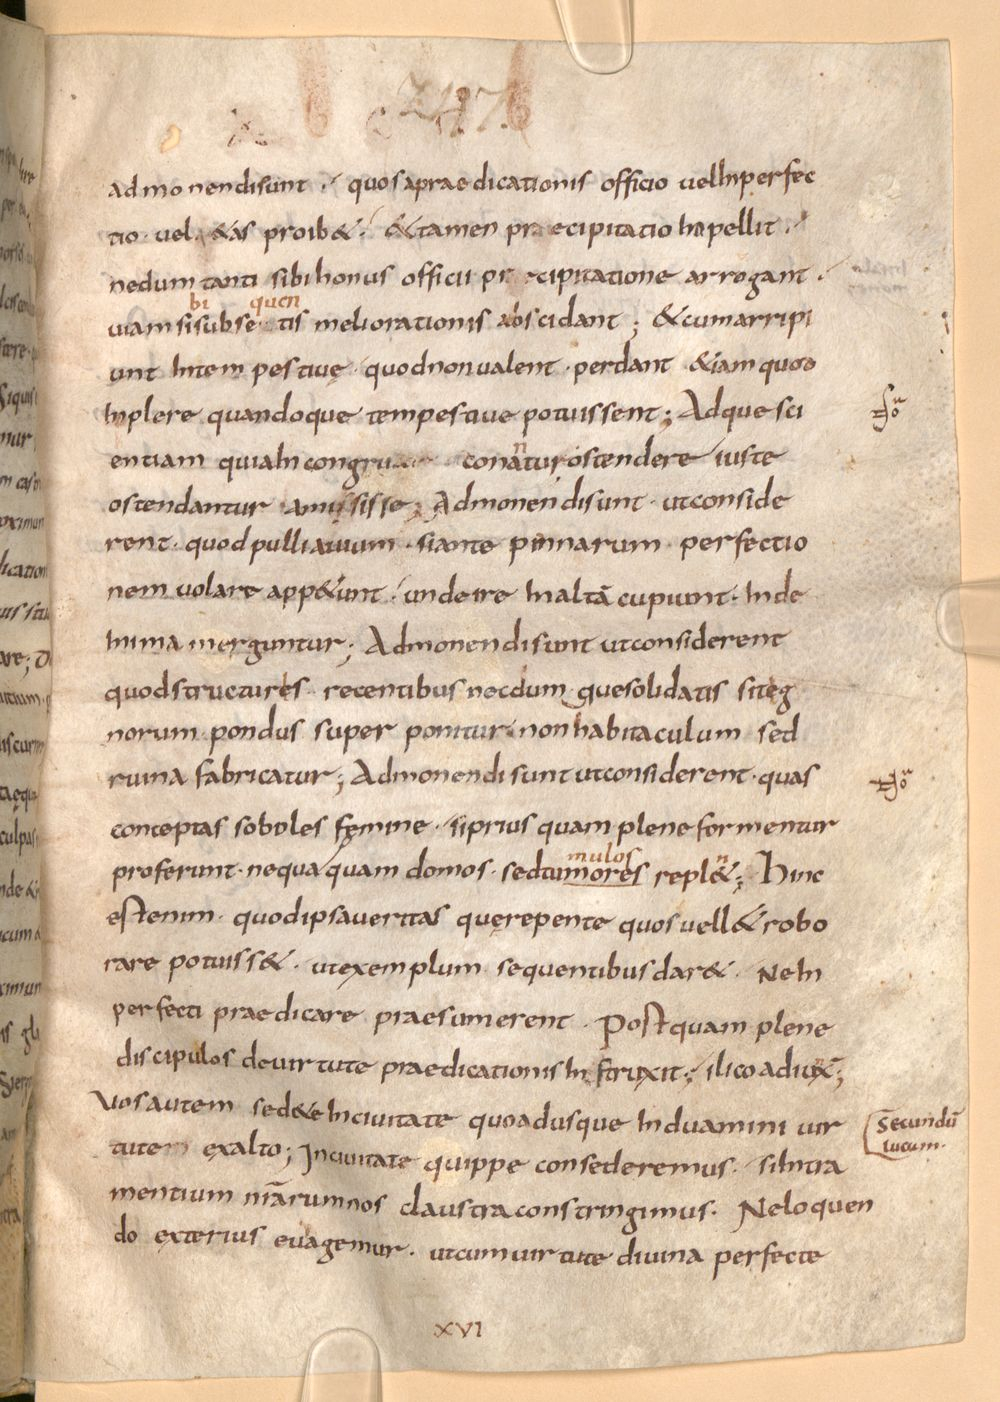 247.
admonendi sunt · quos a praedicationis officio vel inperfec
tio · vel &as proib& · &tamen praecipitatio inpellit ·
nedum tanti sibi honus officii precipitatione arrogant ·
viam si subse tis meliorationis abscidant ; &cum arripi
bi quen
unt intempestive · quod non valent · perdant &iam quod
inplere quandoque tempestive potuissent ; Adque sci
entiam quia incongru conantur ostendere iuste
n
ostendantur amisisse ; Admonendi sunt · ut conside
rent · quod pulli avium · si ante pinnarum perfectio
nem volare app&unt · unde ire in altā cupiunt · inde
in ima merguntur ; Admonendi sunt ut considerent
quod structures recentibus necdum que solidatis si teg
norum pondus super ponitur · non habitaculum sed
ruina fabricatur ; Admonendi sunt ut considerent · quas
conceptas soboles femine · si prius quam plene formentur
proferunt · nequaquam domos · sed tumores repl& ; Hinc
mulos n
est enim · quod ipsa veritas quę repente quos vell& robo
rare potuiss& · ut exemplum sequentibus dar& · Ne in
perfecti praedicare praesumerent · Postquam plene
discipulos de virtute praedicationis instruxit ; ilico adiux̄ ;
Vos autem sed&e in civitate quoadusque induamini vir
Secundū
lucam ·
tute ex alto ; In civitate quippe consederemus · si intra
mentium nr̄arum nos claustra constringimus · Ne loquen
do exterius evagemur · ut cum virtute divina perfecte
xvi